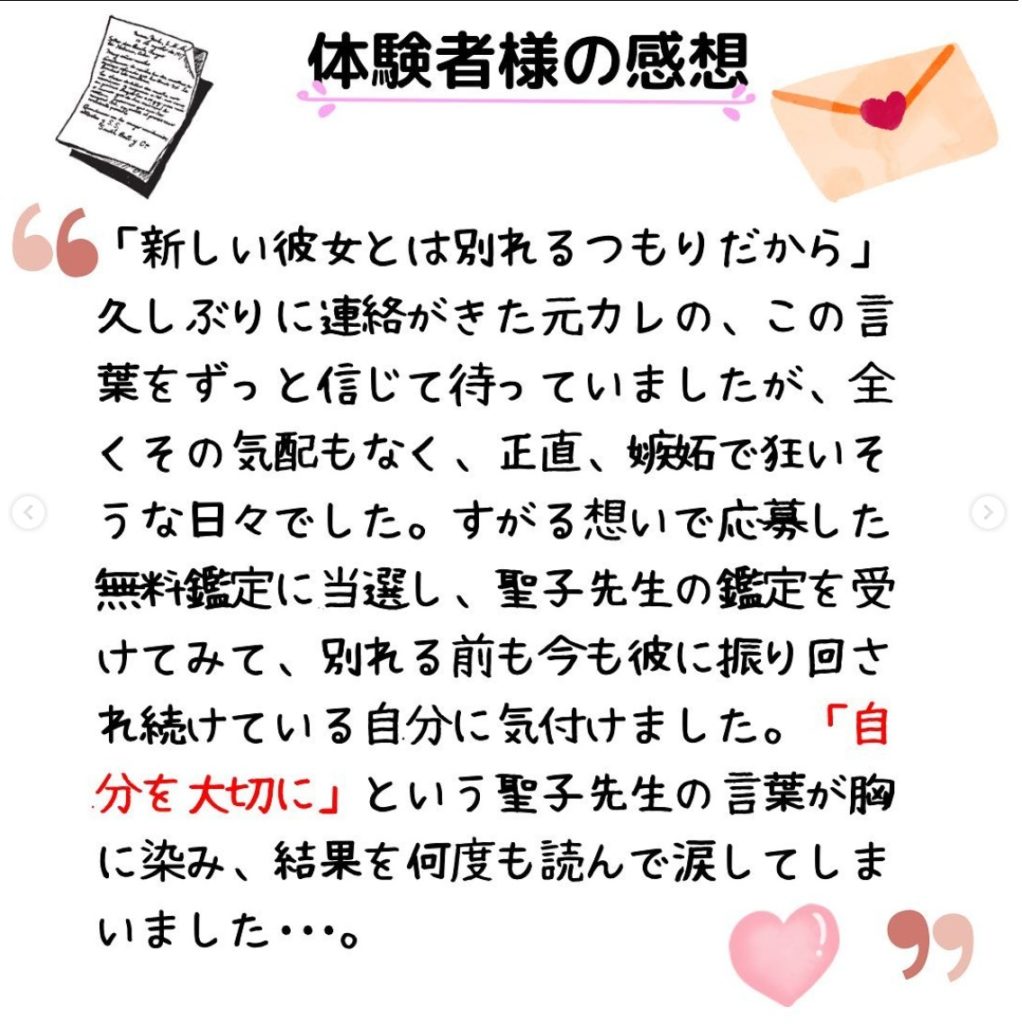 体験者様の感想
「新しい彼女とは別れるつもりだから」
久しぶりに連絡がきた元カレの、この言
葉をずっと信じて待っていましたが、全
くその気配もなく、正直、嫉妬で狂いそ
うな日々でした。すがる想いで応募した
無料鑑定に当選し、聖子先生の鑑定を受
けてみて、別れる前も今も彼に振り回さ
れ続けている自分に気付けました。「自
分を大切に」という聖子先生の言葉が胸
に染み、結果を何度も読んで涙してしま
いました・・・。